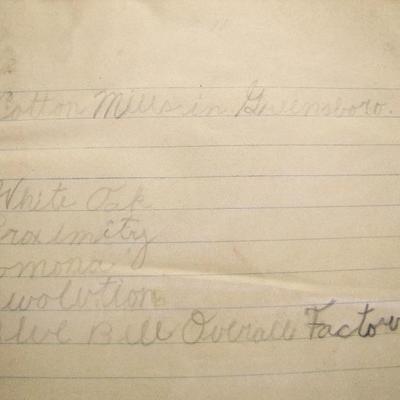 Cotton Mills in Greensboro.
White Oak
Proximity
Pomona
Revolution
Blue Bell Overall Factor